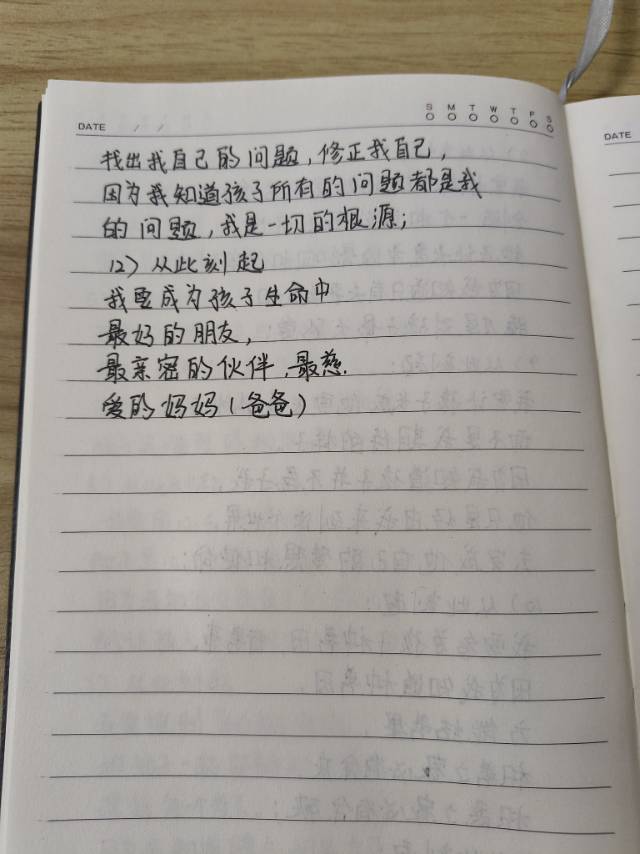 S M T W T F S
DATE / /
DATE
找出我自己的问题,修正我自己,
因为我知道孩子所有的问题都是我
的问题,我是一切的根源;
12)从此刻起
我要成为孩子生命中
最好的朋友,
最亲密的伙伴,最慈
爱的妈妈(爸爸)